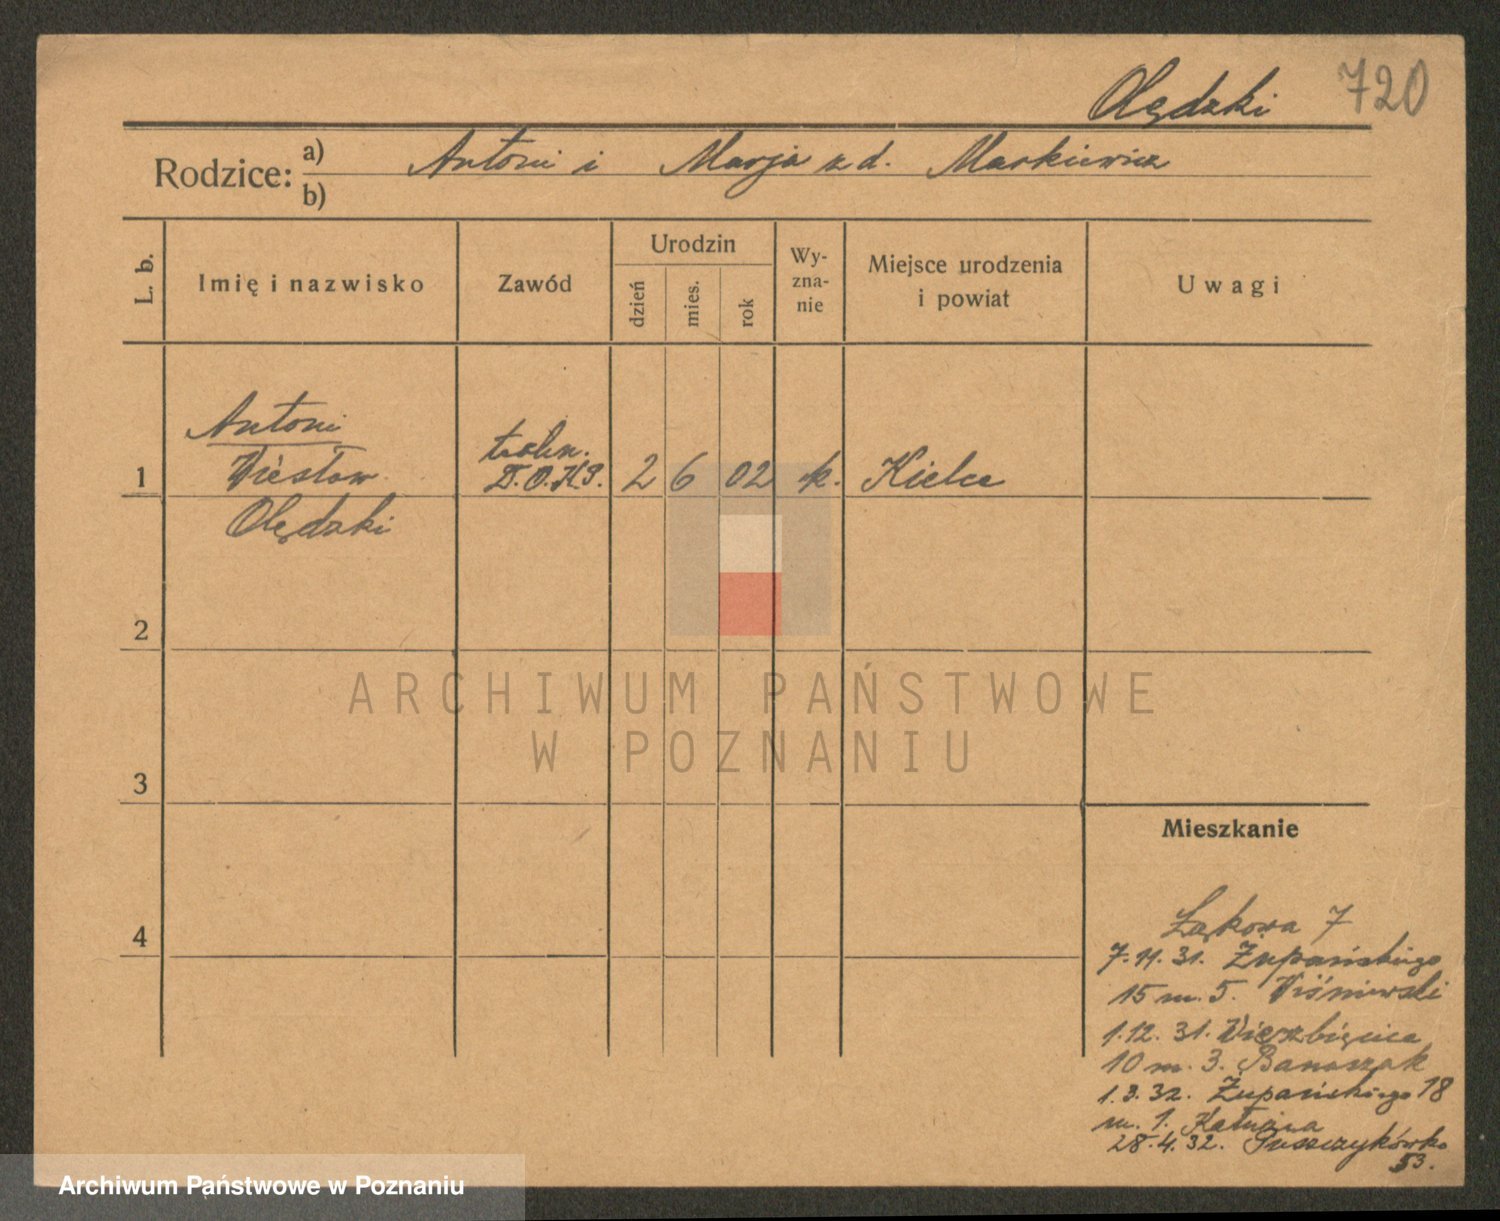 Olędzki 720
Rodzice: a) Antoni i Marja z d. Markiewicz
b)
L. b.
Imię i nazwisko
Zawód
Urodzin
dzień
mies.
rok
Wy-
zna-
nie
Miejsce urodzenia
i powiat
Uwagi
Antoni
1 Wiesław techn. D.O.K.P. 2 6 02 k. Kielce
Olędzki
2
3
4
ARCHIWUM PAŃSTWOWE
W POZNANIU
Mieszkanie
Łąkowa 7
7.11.31. Żupańskiego
15 m. 5. Wiśniewski
1.12.31. Wierzbięcice
10 m. 3. Banaszak
1.3.32. Żupańskiego 18
m. 1.
28.4.32. Puszczykówko
53.
Archiwum Państwowe w Poznaniu